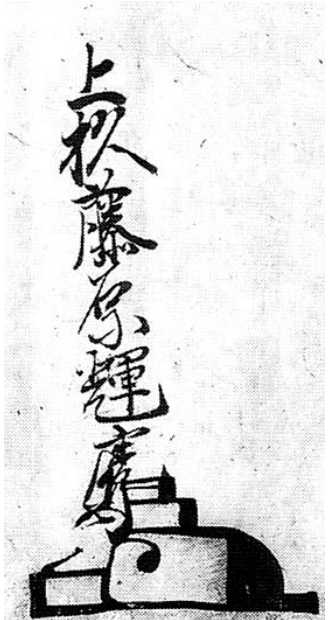 上杉藤原輝虎